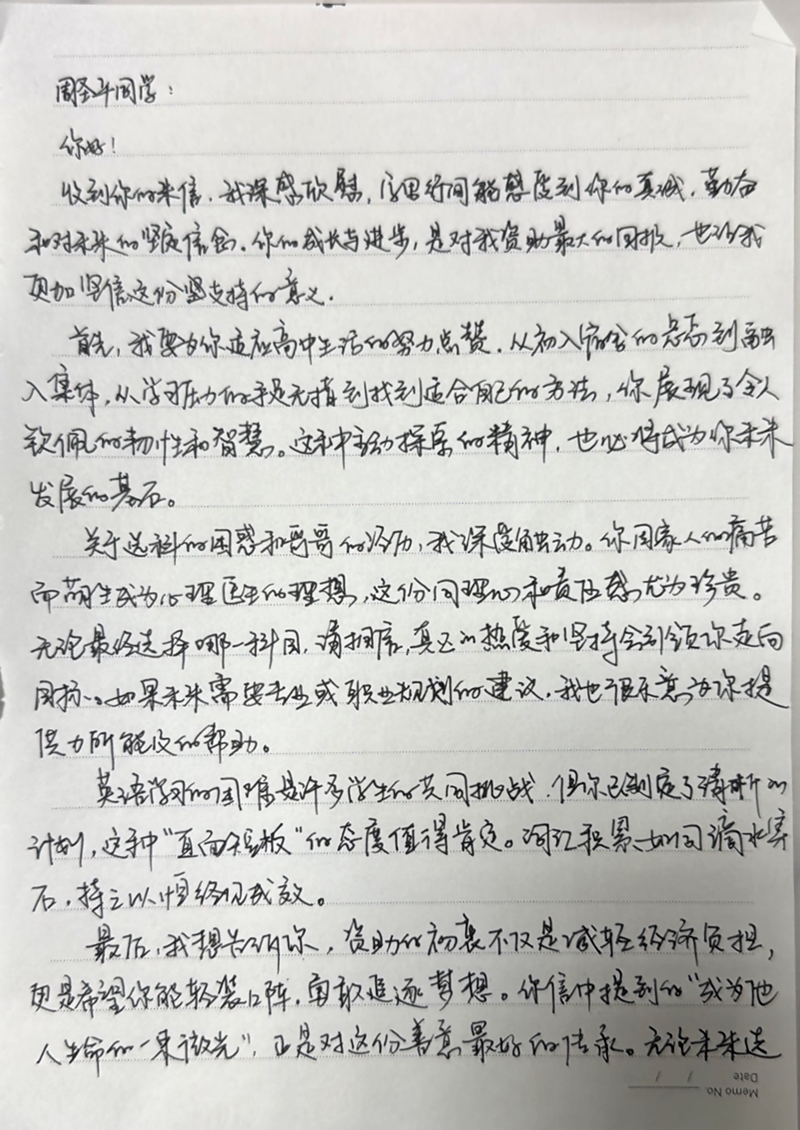 周圣斗同学：
你好！
收到你的来信，我深感欣慰，字里行间能感受到你的真诚、勤奋
和对未来的坚定信念。你的成长与进步，是对我资助最大的回报，也让我
更加坚信这份坚支持的意义。
首先，我要为你适应高中生活的努力点赞。从初入宿舍的忐忑到融
入集体，从学习压力的手足无措到找到适合自己的方法，你展现了令人
钦佩的韧性和智慧。这种主动探索的精神，也必将成为你未来
发展的基石。
关于选科的困惑和哥哥的经历，我深受触动。你因家人的痛苦
而萌生成为心理医生的理想，这份同理心和责任感尤为珍贵。
无论最终选择哪一科目，请相信，真正的热爱和坚持会引领你走向
目标。如果未来需要专业或职业规划的建议，我也很乐意为你提
供力所能及的帮助。
英语学习的困难是许多学生的共同挑战，但你已制定了清晰的
计划，这种“直面短板”的态度值得肯定。词汇积累如同滴水穿
石，持之以恒终见成效。
最后，我想告诉你，资助的初衷不仅是减轻经济负担，
更是希望你能轻装上阵，勇敢追逐梦想。你信中提到的“成为他
人生命的一束微光”，正是对这份善意最好的传承。无论未来选
Memo No
Date / /